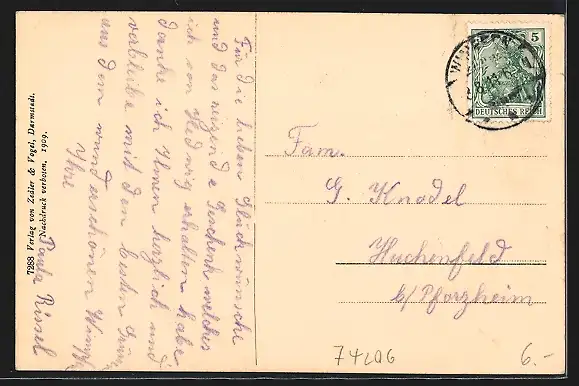 Für die lieben Glückwünsche
und das reizende Geschenk welches
ich von Hedwig erhalten habe
danke ich Ihnen herzlich und
verbleibe mit den besten
aus dem wunderschönen
Ihre
Paula
7288 Verlag von Zedler & Vogel, Darmstadt.
Nachdruck verboten, 1909.
5
DEUTSCHES REICH
Fam.
G. Knodel
Huchenfeld
b/Pforzheim
6.-